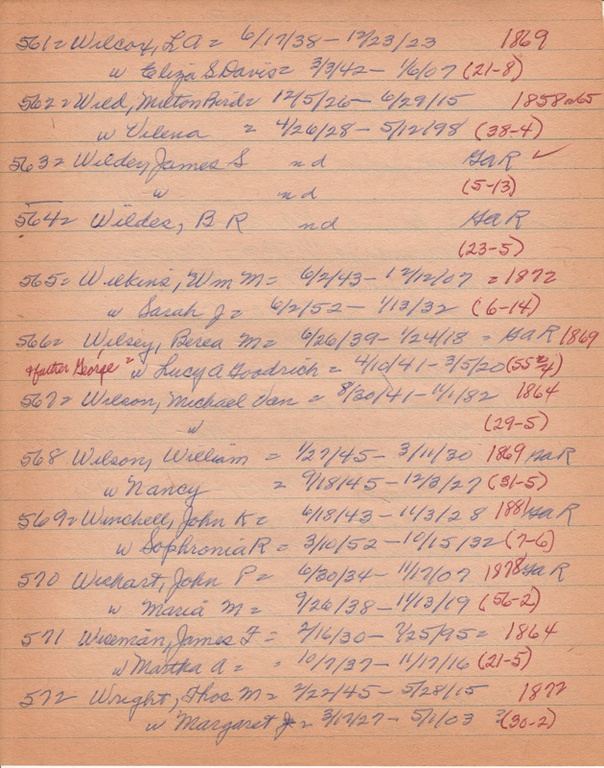 561 = Wilcox, L A = 6/17/38 - 12/23/23 1869
w Eliza S Davis = 3/3/42 - 1/6/07 (21-8)
562 = Wild, Milton Bird = 12/5/26 - 6/29/15 1858 or 65
w Vilena = 4/26/28 - 5/12/98 (38-4)
563 = Wilder, James S nd GaR ✓
w nd (5-13)
564 = Wildes, B R nd GaR
(23-5)
565 = Wilkins, Wm M = 6/2/43 - 12/12/07 = 1872
w Sarah J = 6/2/52 - 1/13/32 (6-14)
566 = Wilsey, Berea M = 6/26/39 - 1/24/18 = GaR 1869
& father George = w Lucy A Goodrich = 4/10/41 - 3/5/20
567 = Wilson, Michael Van = 8/30/41 - 11/1/82 1864
w (29-5)
568 Wilson, William = 1/27/45 - 3/11/30 1869 GaR
w Nancy = 9/18/45 - 12/3/27 (31-5)
569 = Winchell, John K = 6/18/43 - 11/3/28 1881 GaR
w Sophronia R = 3/10/52 - 10/15/32 (7-6)
570 Wichart, John P = 6/30/34 - 11/17/07 1878 GaR
w Maria M = 9/26/38 - 11/13/19 (56-2)
571 Wiseman, James F = 2/16/30 - 7/25/95 = 1864
w Martha A = = 10/7/37 - 11/17/16 (21-5)
572 Wright, Thos M = 2/22/45 - 5/28/15 1872
w Margaret J = 3/17/27 - 5/1/03 ?(30-2)